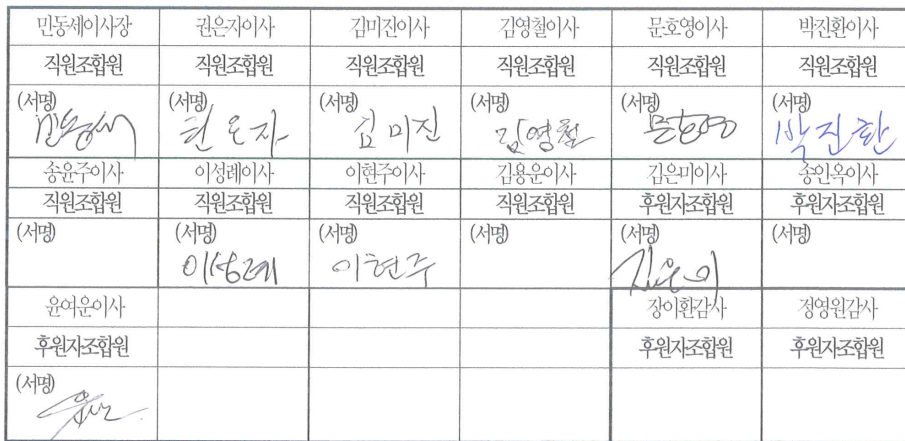 민동세이사장 권은자이사 김미진이사 김영철이사 문호영이사 박진환이사
직원조합원 직원조합원 직원조합원 직원조합원 직원조합원 직원조합원
(서명) (서명) (서명) (서명) (서명) (서명)
민동세 권은자 김미진 김영철 문호영 박진환
송윤주이사 이성례이사 이현주이사 김용운이사 김은미이사 송인옥이사
직원조합원 직원조합원 직원조합원 직원조합원 후원자조합원 후원자조합원
(서명) (서명) (서명) (서명) (서명) (서명)
이성례 이현주 김은미
윤여운이사 장이환감사 정영원감사
후원자조합원 후원자조합원 후원자조합원
(서명)